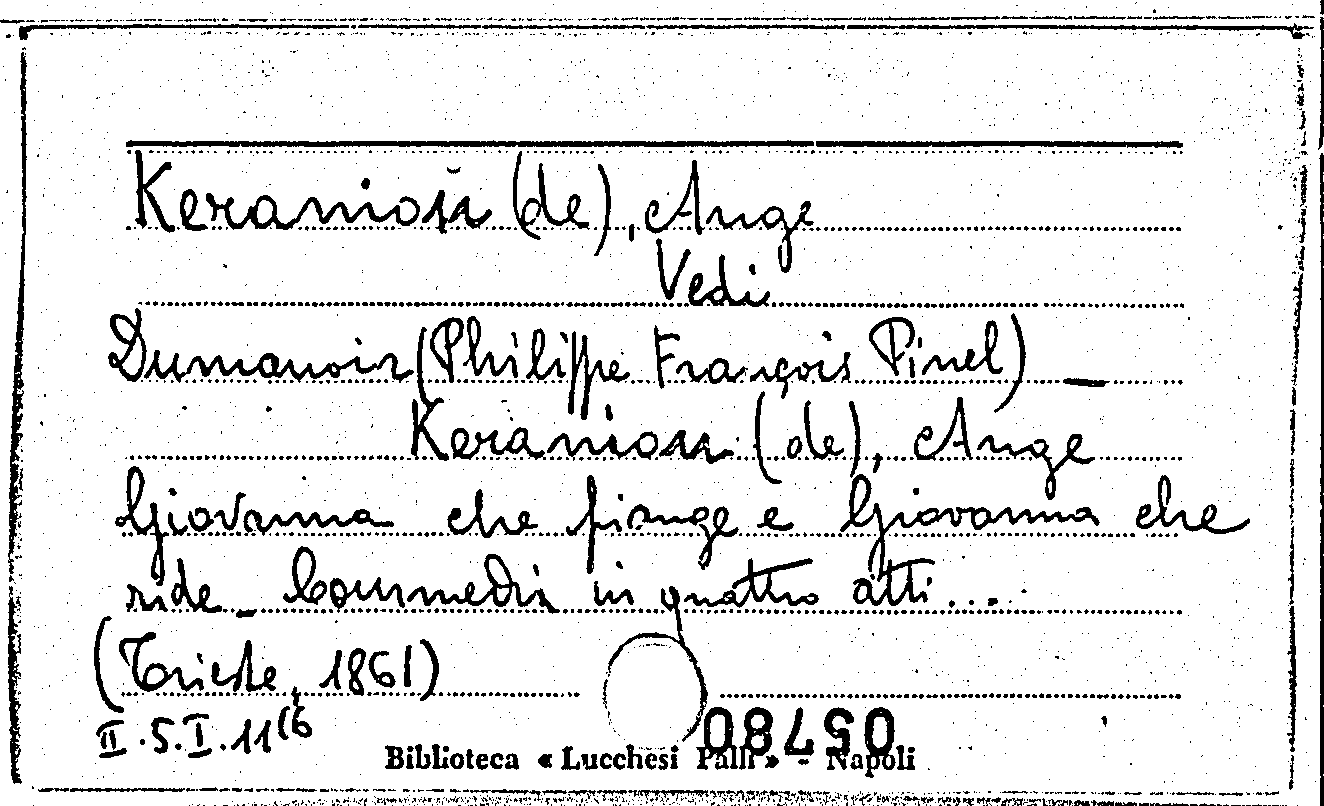 Keraniou (de), Ange
Vedi
Dumanoir (Philippe François Pinel) —
Keraniou (de), Ange
Giovanna che piange e Giovanna che
ride - Commedia in quattro atti...
(Trieste, 1861)
II.5.I.11(6
05780
Biblioteca « Lucchesi Palli » - Napoli